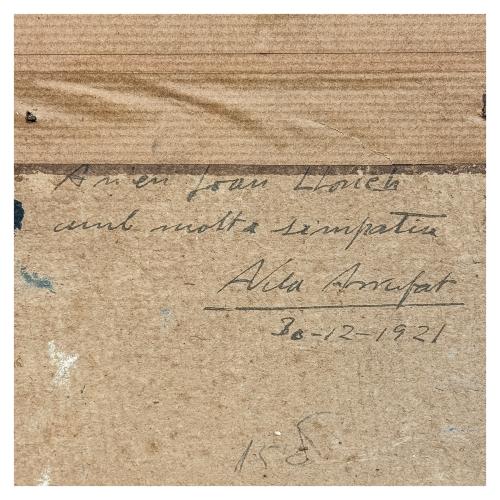 A n'en Joan Llonch
amb molta simpatia
A Vila Arrufat
30-12-1921
158